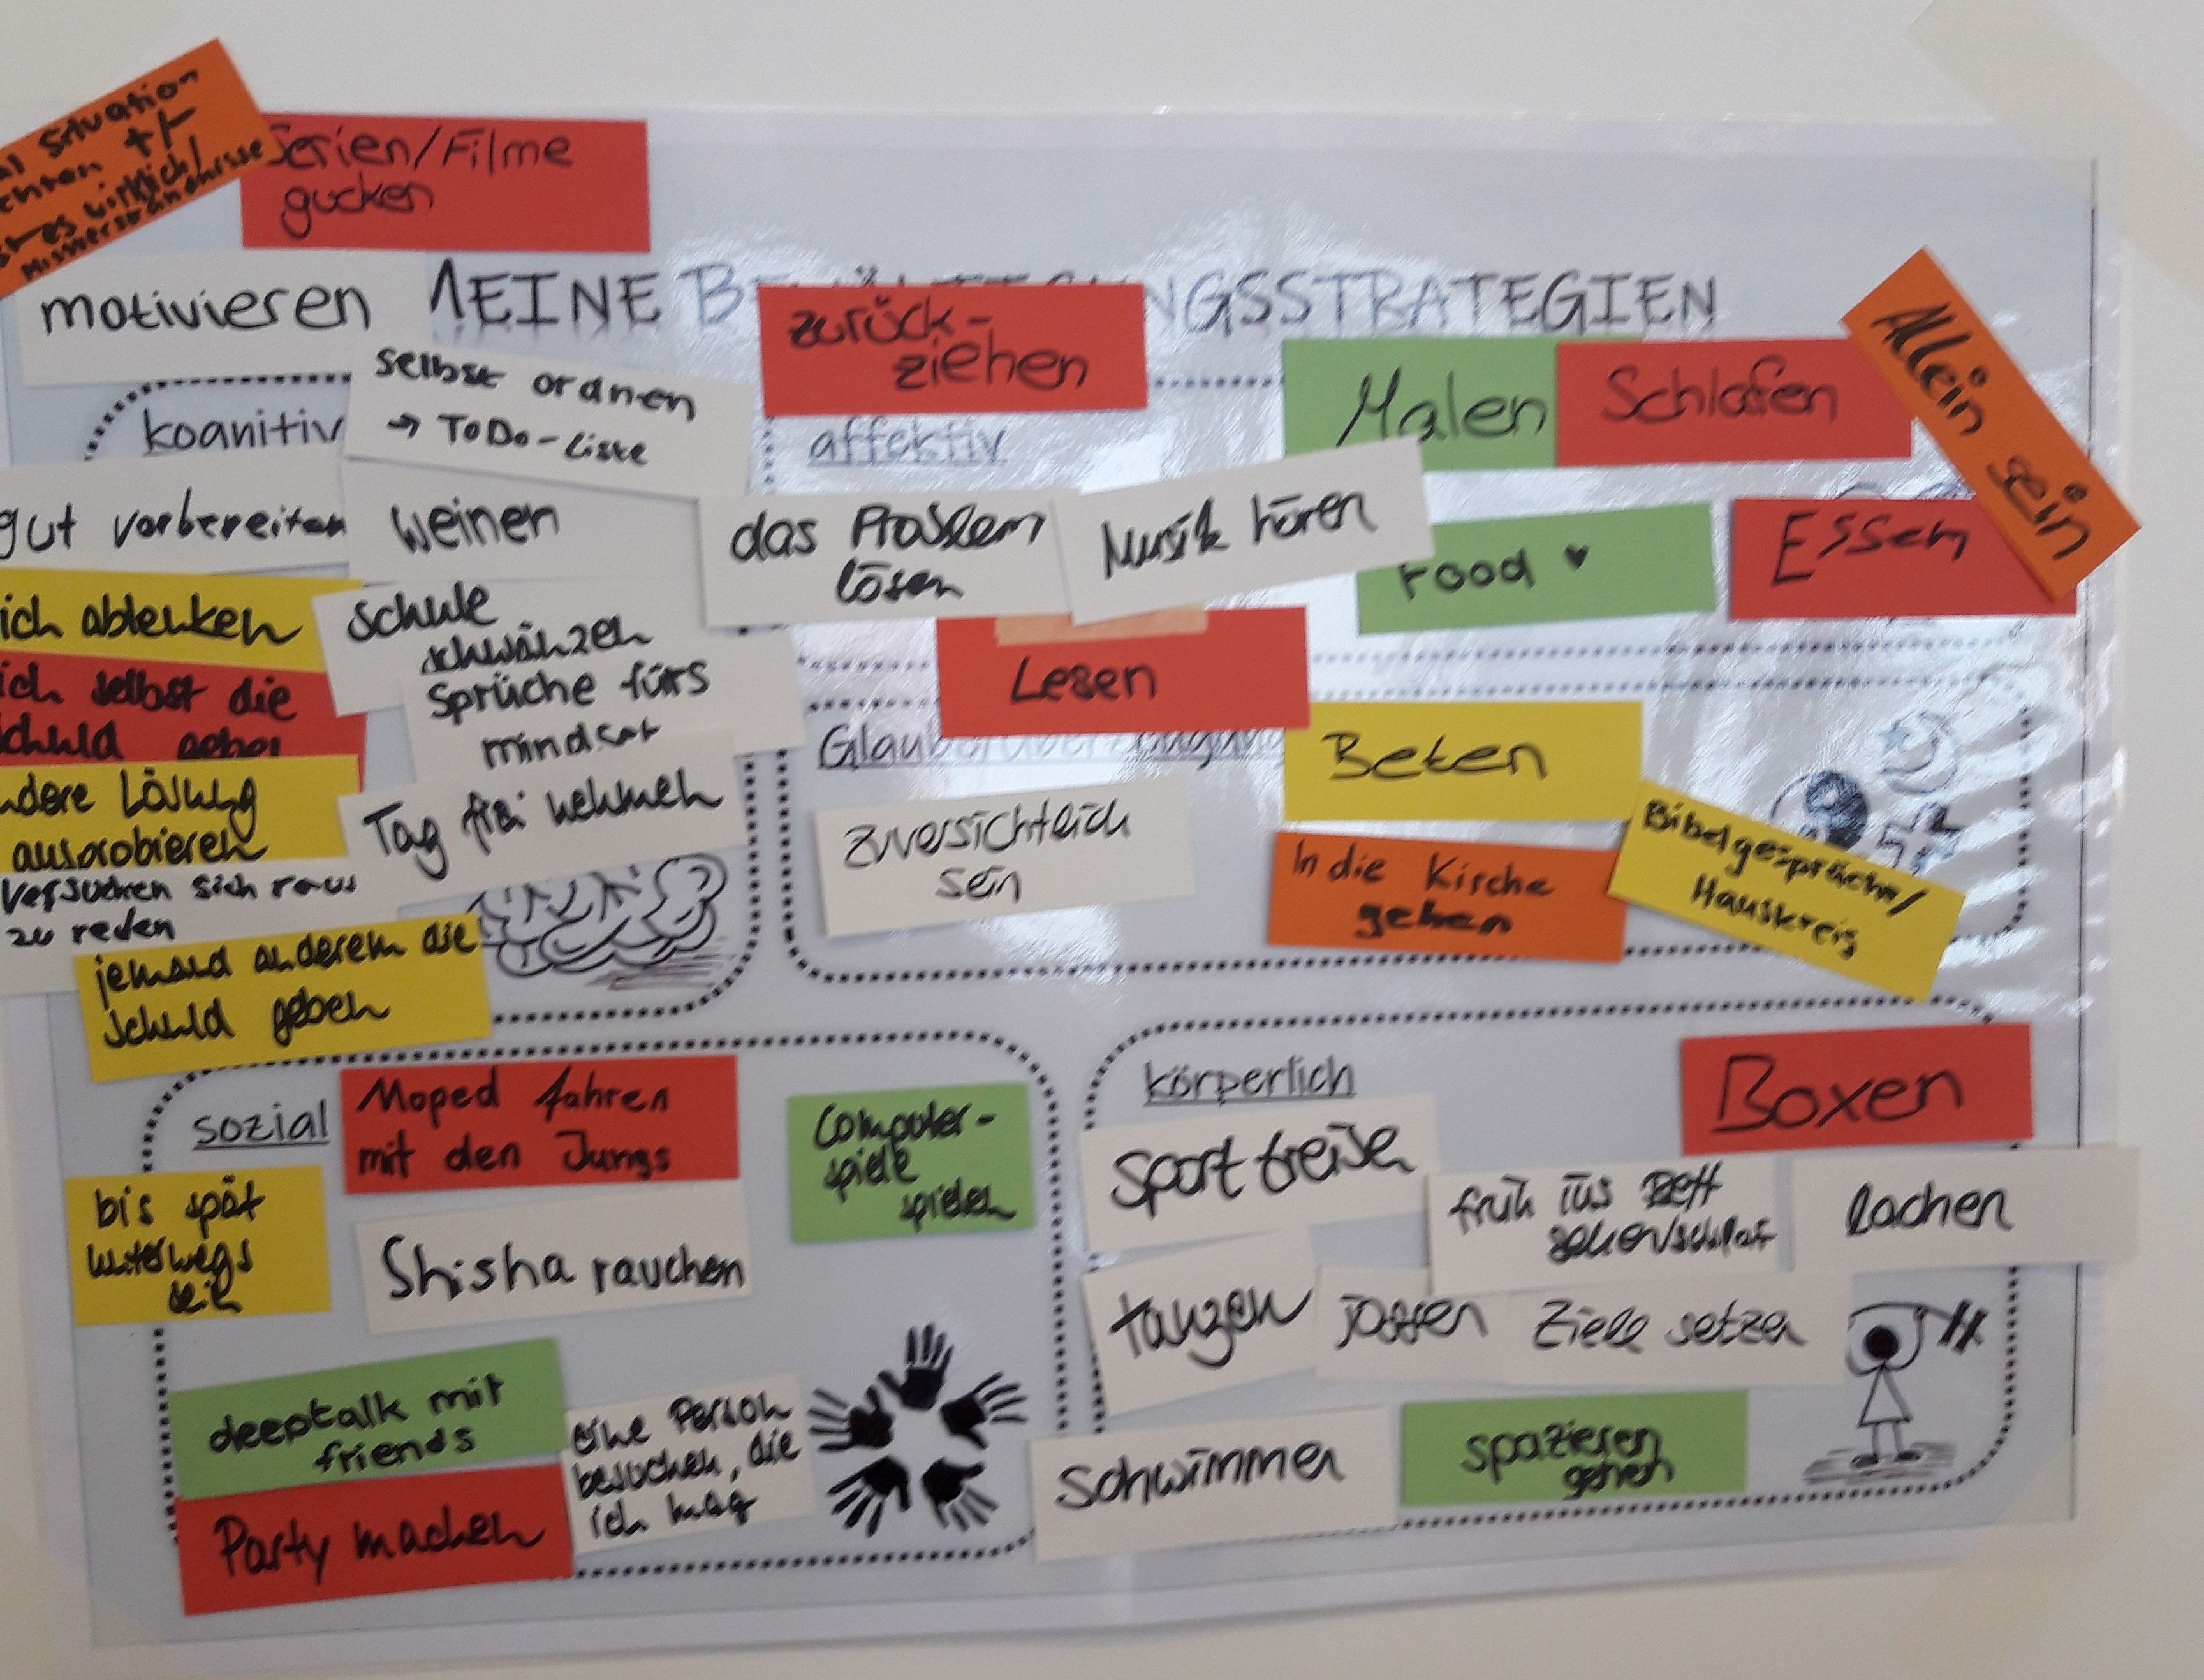 Situation
+/-
wirklich/
Missverständnisse
Serien/Filme
gucken
motivieren
MEINE B NGSSTRATEGIEN
zurück-
ziehen
Malen
Schlafen
Allein
sein
kognitiv
selbst ordnen
→ ToDo-Liste
affektiv
gut vorbereiten
weinen
das Problem
lösen
Musik hören
Food ♥
Essen
ich ablenken
Schule
schwänzen
ich selbst die
schuld geben
Sprüche fürs
mindset
Lesen
Glaube/Überzeugung
Beten
ndere Lösung
ausprobieren
Tag frei nehmen
zuversichtlich
sein
In die Kirche
gehen
Bibelgespräche/
Hauskreis
versuchen sich raus
zu reden
jemand anderem die
schuld geben
sozial
Moped fahren
mit den Jungs
Computer-
spiele
spielen
bis spät
unterwegs
sein
Shisha rauchen
deeptalk mit
friends
eine Person
besuchen, die
ich mag
Party machen
körperlich
Boxen
Sport treiben
früh ins Bett
gehen/schlaf
lachen
tanzen
joggen
Ziele setzen
Schwimmen
spazieren
gehen